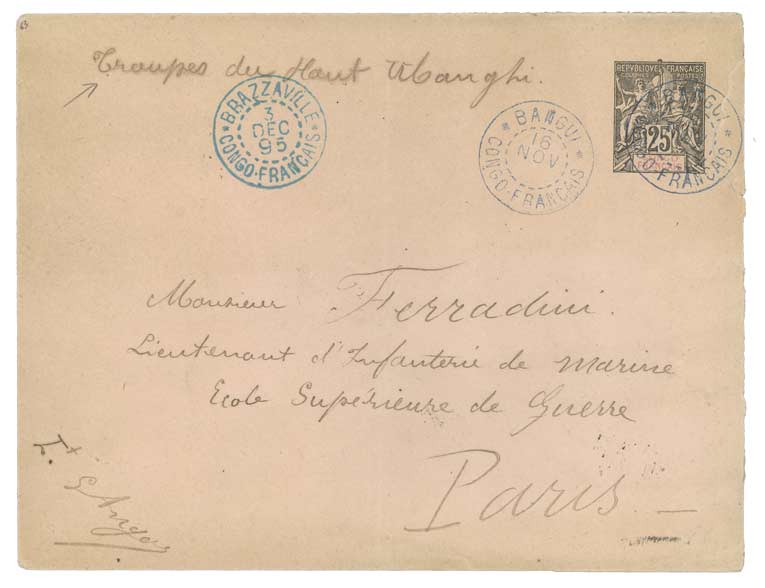 Troupes du Haut Ubanghi.
BRAZZAVILLE
3
DEC
95
CONGO-FRANCAIS
BANGUI
16
NOV
CONGO-FRANCAIS
REPVBLIQUE FRANÇAISE
COLONIES POSTES
25
BANGUI
FRANCAIS
Monsieur Ferradini.
Lieutenant d'Infanterie de Marine
Ecole Supérieure de Guerre
Paris